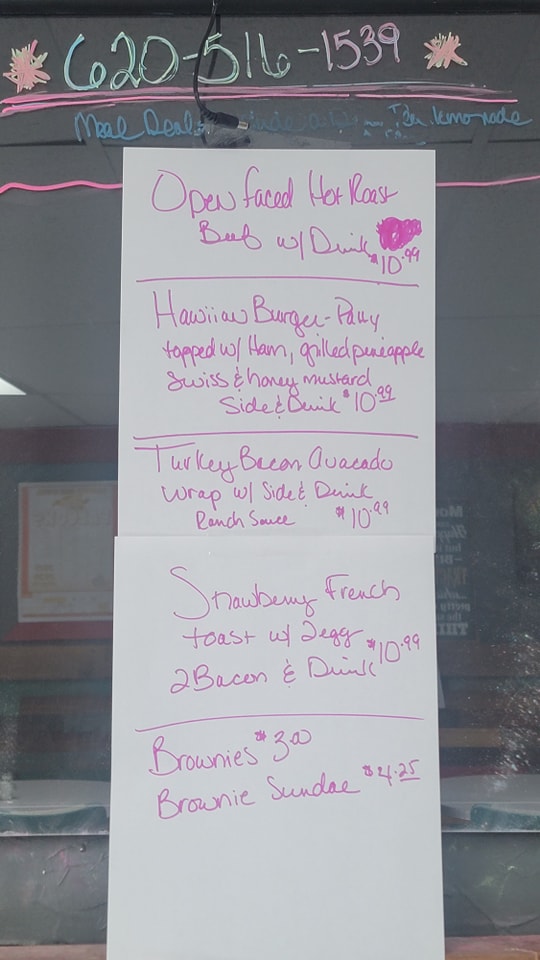 620-516-1539
Meal Deals lemonade
Open faced Hot Roast
Beef w/ Drink
$10.99
Hawiian Burger-Patty
topped w/ Ham, grilled pineapple
Swiss & honey mustard
Side & Drink $10.99
Turkey Bacon Avacado
Wrap w/ Side & Drink
Ranch Sauce $10.99
Strawberry French
toast w/ 2egg
$10.99
2Bacon & Drink
Brownies $3.00
Brownie Sundae $4.25